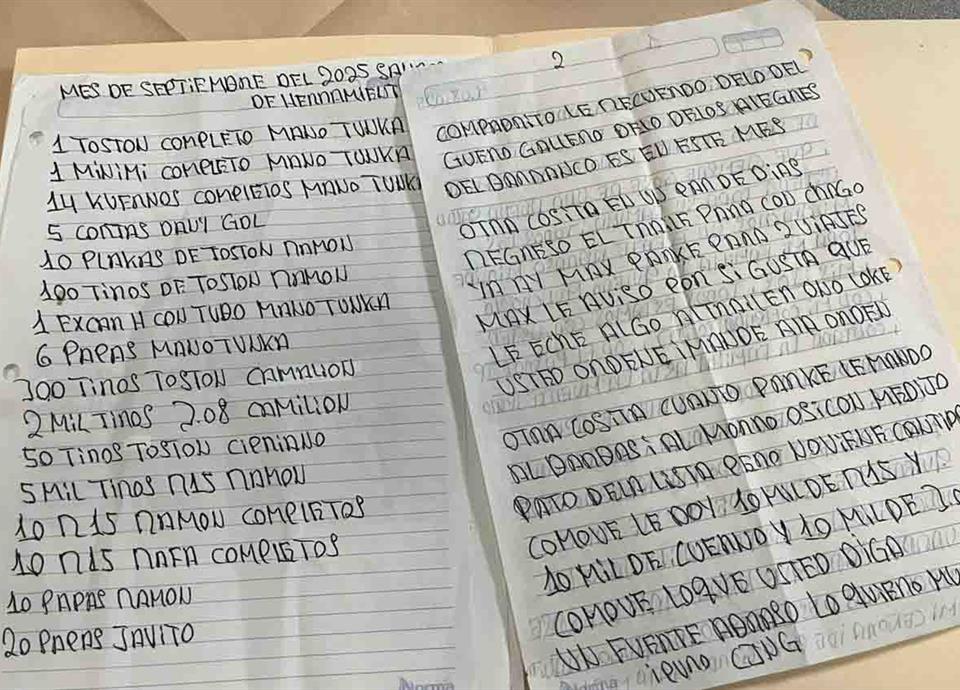 MES DE SEPTIEMBRE DEL 2025
DE
1 TOSTON COMPLETO MANO TUNKA
1 MINIMI COMPLETO MANO TUNKA
14 KUERNOS COMPLETOS MANO
5 CORTAS DAVY GOL
10 PLAKAS DE TOSTON RAMON
100 TIROS DE TOSTON RAMON
1 EXCAR H CON TUBO MANO TUNKA
6 PAPAS MANO TUNKA
300 TIROS TOSTON CAMALION
2 MIL TIROS 2.08 CAMILION
50 TIROS TOSTON CIPRIANO
5 MIL TIROS R15 RAMON
10 R15 RAMON COMPLETOS
10 R15 RAFA COMPLETOS
10 PAPAS RAMON
20 PAPAS JAVITO
Norma
2
COMPADRITO LE RECUERDO DELO DEL
GUERO GALLERO DELO DELOS ALEGRES
DEL BARRANCO ES EN ESTE MES
OTRA COSITA EN UN PAR DE DIAS
REGRESO EL TRAILE PARA COD CHAGO
YA AY MAX PARKE PARA 2 VIAJES
MAX LE AVISO POR SI GUSTA QUE
LE ECHE ALGO AL TRAILER ONO LOKE
USTED ORDENE I MANDE ALA ORDEN
OTRA COSITA CUANTO PARKE LE MANDO
AL BARBAS I AL MORRO OSICON ME DITO
PATO DELA LISTA PERO NO VIENE
COMOVE LE DOY 10 MIL DE R15 Y
10 MIL DE CUERNO Y 10 MIL DE
COMOVE LOQUE USTED DIGA
UN FUERTE ABRASO LO QUIERO
CJNG